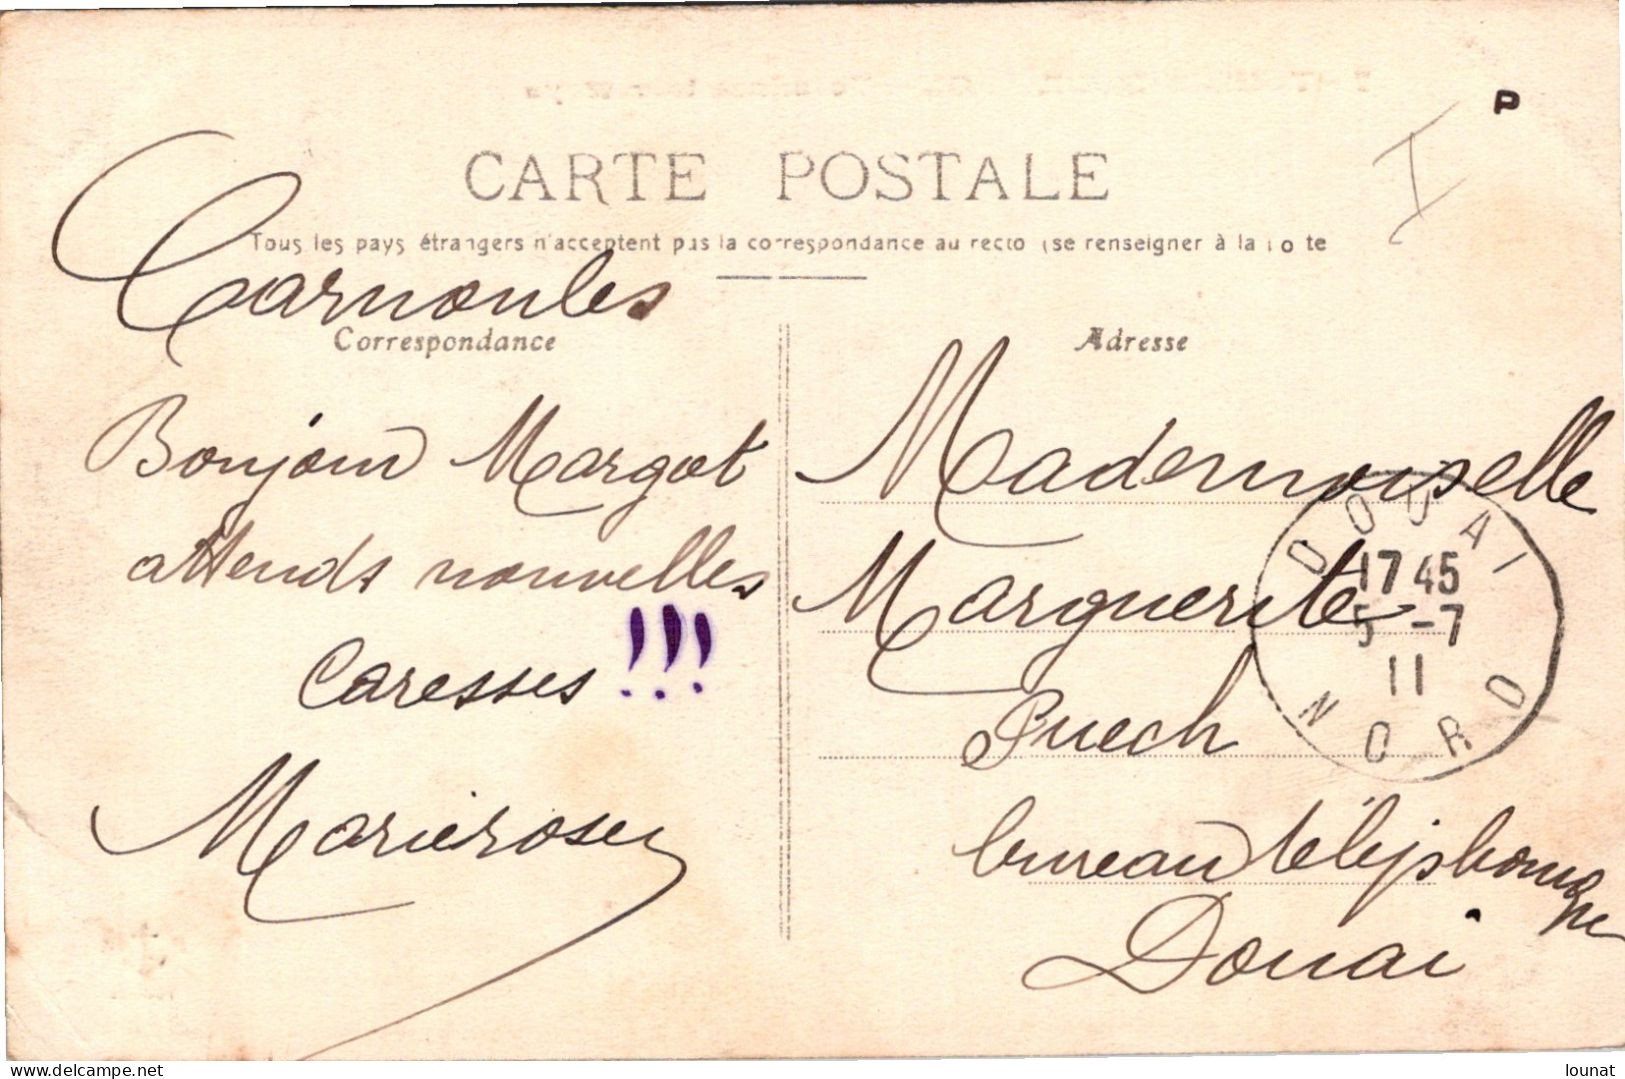 P
I
CARTE POSTALE
Tous les pays étrangers n'acceptent pas la correspondance au recto (se renseigner à la
Carnoules
Correspondance
Bonjour Margot
attends nouvelles
Caresses !!!
Marierose
Adresse
Mademoiselle
Marguerite
Puech
bureau téléphonique
Douai
DOUAI
17 45
5 -7
11
NORD
www.delcampe.net
lounat